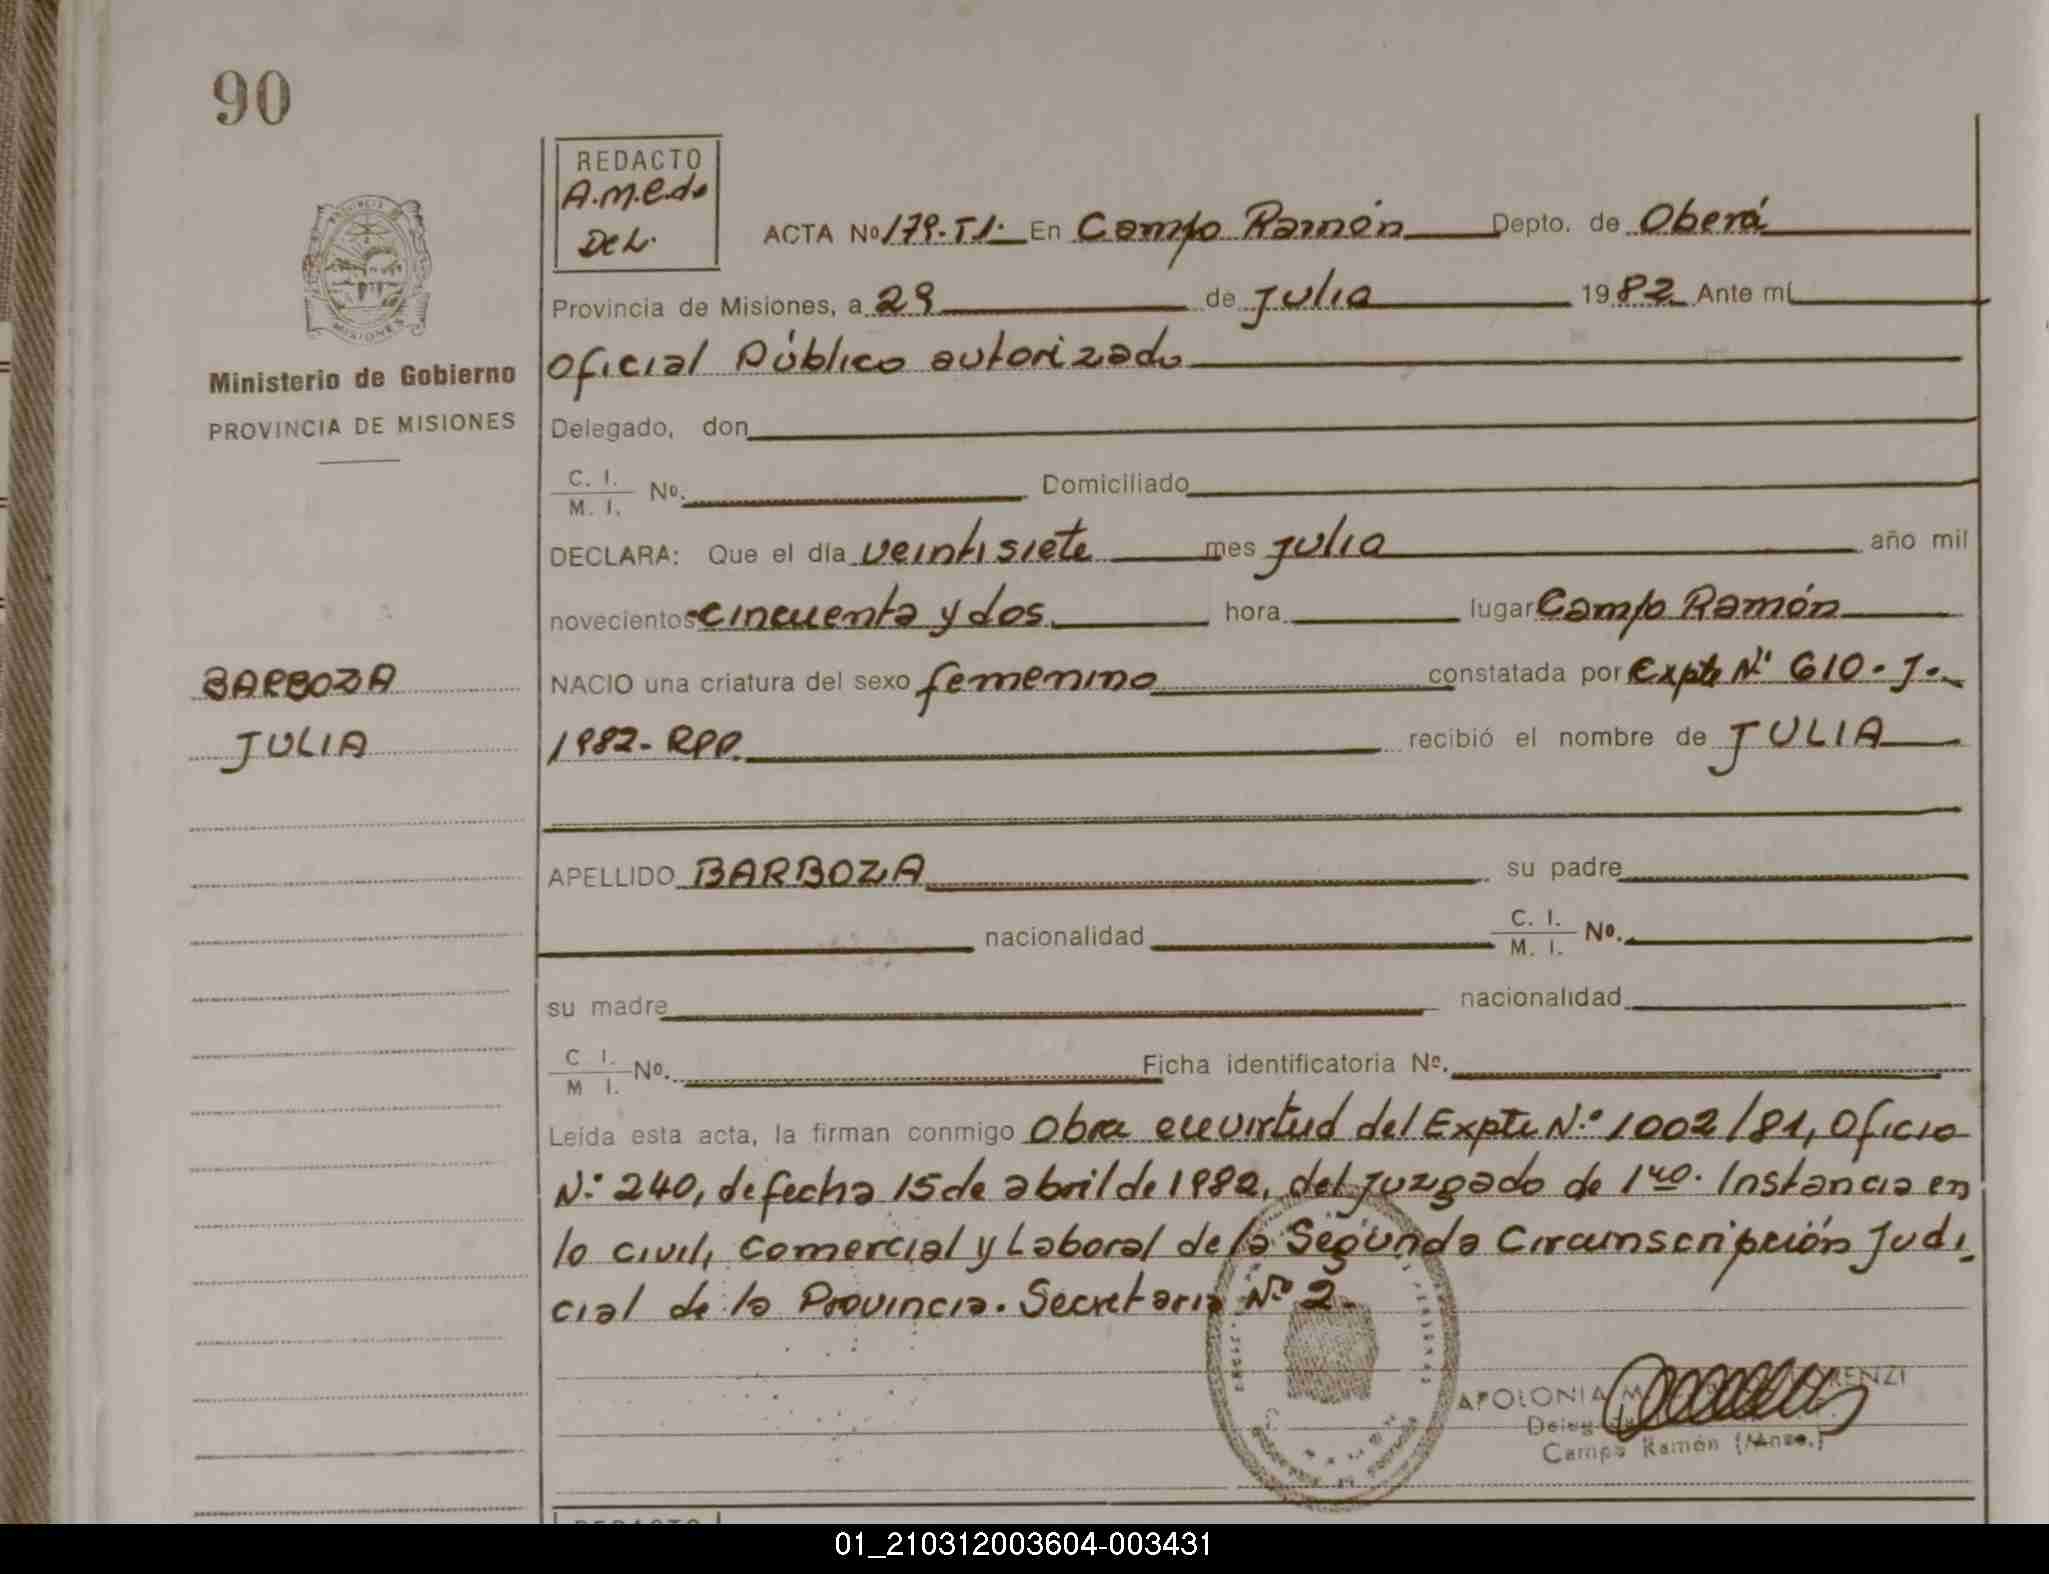 90
REDACTO
A.M.E.de
Del.
PROVINCIA DE
MISIONES
Ministerio de Gobierno
PROVINCIA DE MISIONES
ACTA Nº 179-T1. En Campo Ramón Depto. de Oberá
Provincia de Misiones, a 29 de Julio 1982 Ante mí
Oficial Público autorizado
Delegado, don
C. I.
M. I. Nº. Domiciliado
DECLARA: Que el día veintisiete mes julio año mil
novecientos cincuenta y dos hora lugar Campo Ramón
BARBOZA
JULIA
NACIO una criatura del sexo femenino constatada por Expte Nº 610-J-
1982-RPP. recibió el nombre de JULIA
APELLIDO BARBOZA su padre
nacionalidad C. I.
M. I. Nº.
su madre nacionalidad
C I.
M I. Nº. Ficha identificatoria Nº.
Leída esta acta, la firman conmigo Obra en virtud del Expte Nº 1002/81, Oficio
Nº 240, de fecha 15 de abril de 1982, del juzgado de 1ro. Instancia en
lo civil, Comercial y Laboral de la Segunda Circunscripción Judi
cial de la Provincia. Secretaria Nº 2.
APOLONIA M RENZI
Deleg
Campo Ramón (Mnes.)
REDACTO
01_210312003604-003431